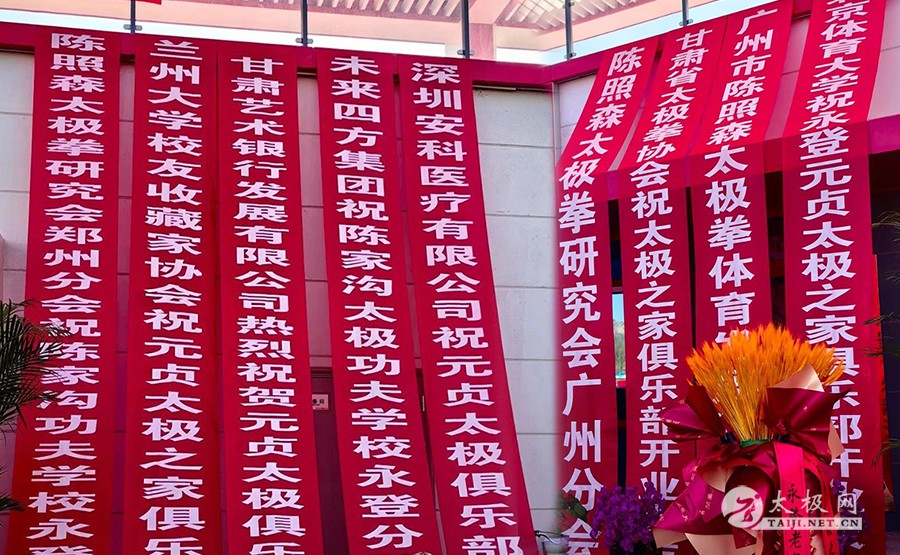 陈照森太极拳研究会郑州分会祝陈家沟功夫学校永登
兰州大学校友收藏家协会祝元贞太极之家俱乐
甘肃艺术银行发展有限公司热烈祝贺元贞太极俱乐
未来四方集团祝陈家沟太极功夫学校永登分
深圳安科医疗有限公司祝元贞太极俱乐部
陈照森太极拳研究会广州分会
甘肃省太极拳协会祝太极之家俱乐部开业
广州市陈照森太极拳体育
京体育大学祝永登元贞太极之家俱乐部开
太极网
TAIJI.NET.CN